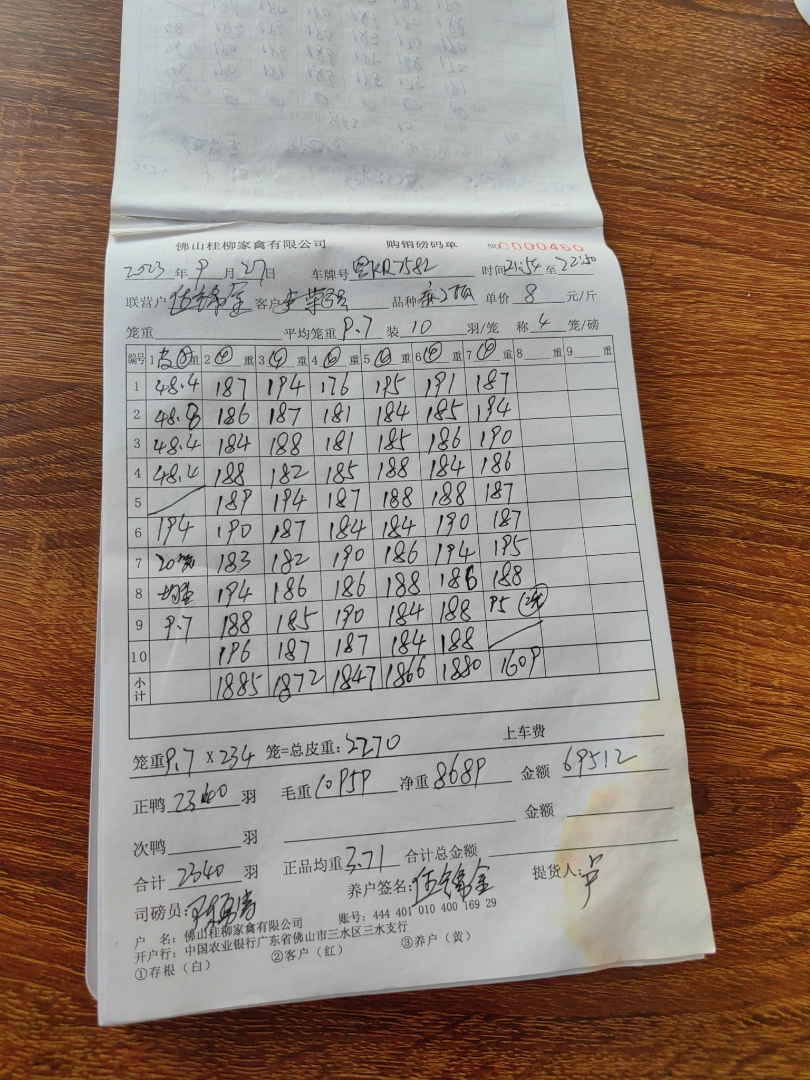 佛山桂柳家禽有限公司 购销磅码单 NO 0000460
2023 年 9 月 27 日 车牌号 KR7582 时间 21:54 至 22:50
联营户 伍锦金 客户 品种 单价 8 元/斤
笼重 平均笼重 9.7 装 10 羽/笼 称 4 笼/磅
编号 1 皮④重 2 ④ 重 3 ④ 重 4 ④ 重 5 ④ 重 6 ④ 重 7 ④ 重 8 重 9 重
1 48.4 187 194 176 195 191 187
2 48.8 186 187 181 184 185 194
3 48.4 184 188 181 185 186 190
4 48.4 188 182 185 188 184 186
5 189 194 187 188 188 187
6 194 190 187 184 184 190 187
7 20笼 183 182 190 186 194 195
8 均重 194 186 186 188 186 188
9 9.7 188 185 190 184 188 95
10 196 187 187 184 188
小计 1885 1872 1847 1866 1880 1609
笼重 9.7 x 234 笼=总皮重: 2270 上车费
正鸭 2340 羽 毛重 10959 净重 8689 金额 69512
次鸭 羽 金额
合计 2340 羽 正品均重 3.71 合计总金额
司磅员: 养户签名: 伍锦金 提货人:
户 名: 佛山桂柳家禽有限公司 账号: 444 401 010 400 169 29
开户行: 中国农业银行广东省佛山市三水区三水支行
①存根(白) ②客户(红) ③养户(黄)